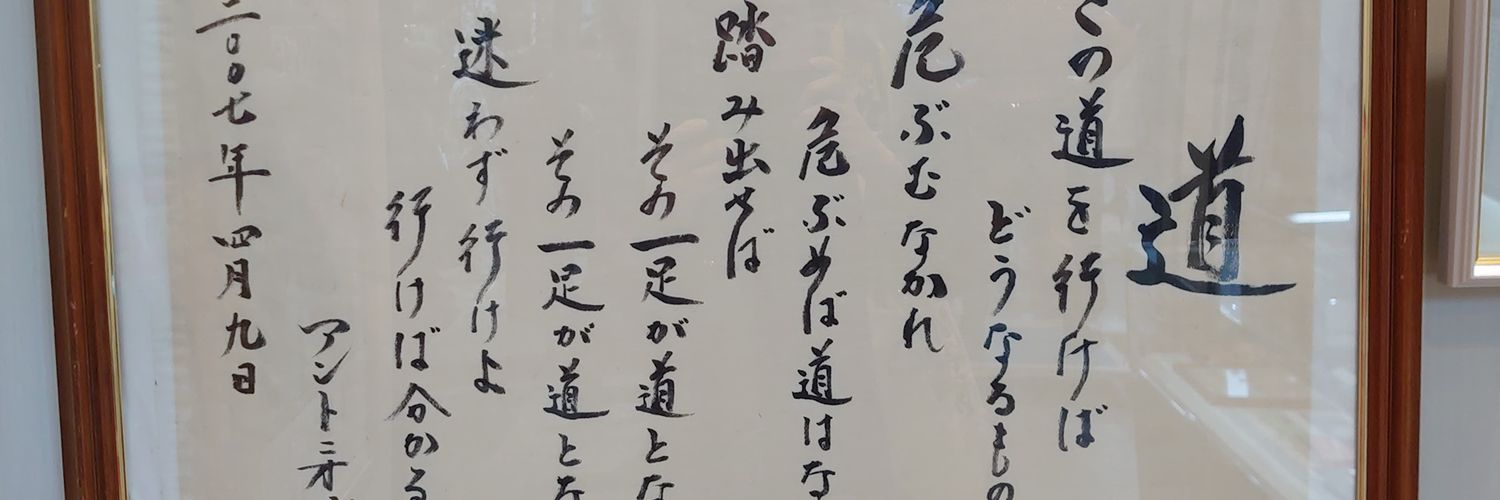 道
この道を行けば
どうなるもの
危ぶむなかれ
危ぶめば道はな
踏み出せば
その一足が道とな
その一足が道とな
迷わず行けよ
行けば分かる
アントニオ
二〇〇七年四月九日